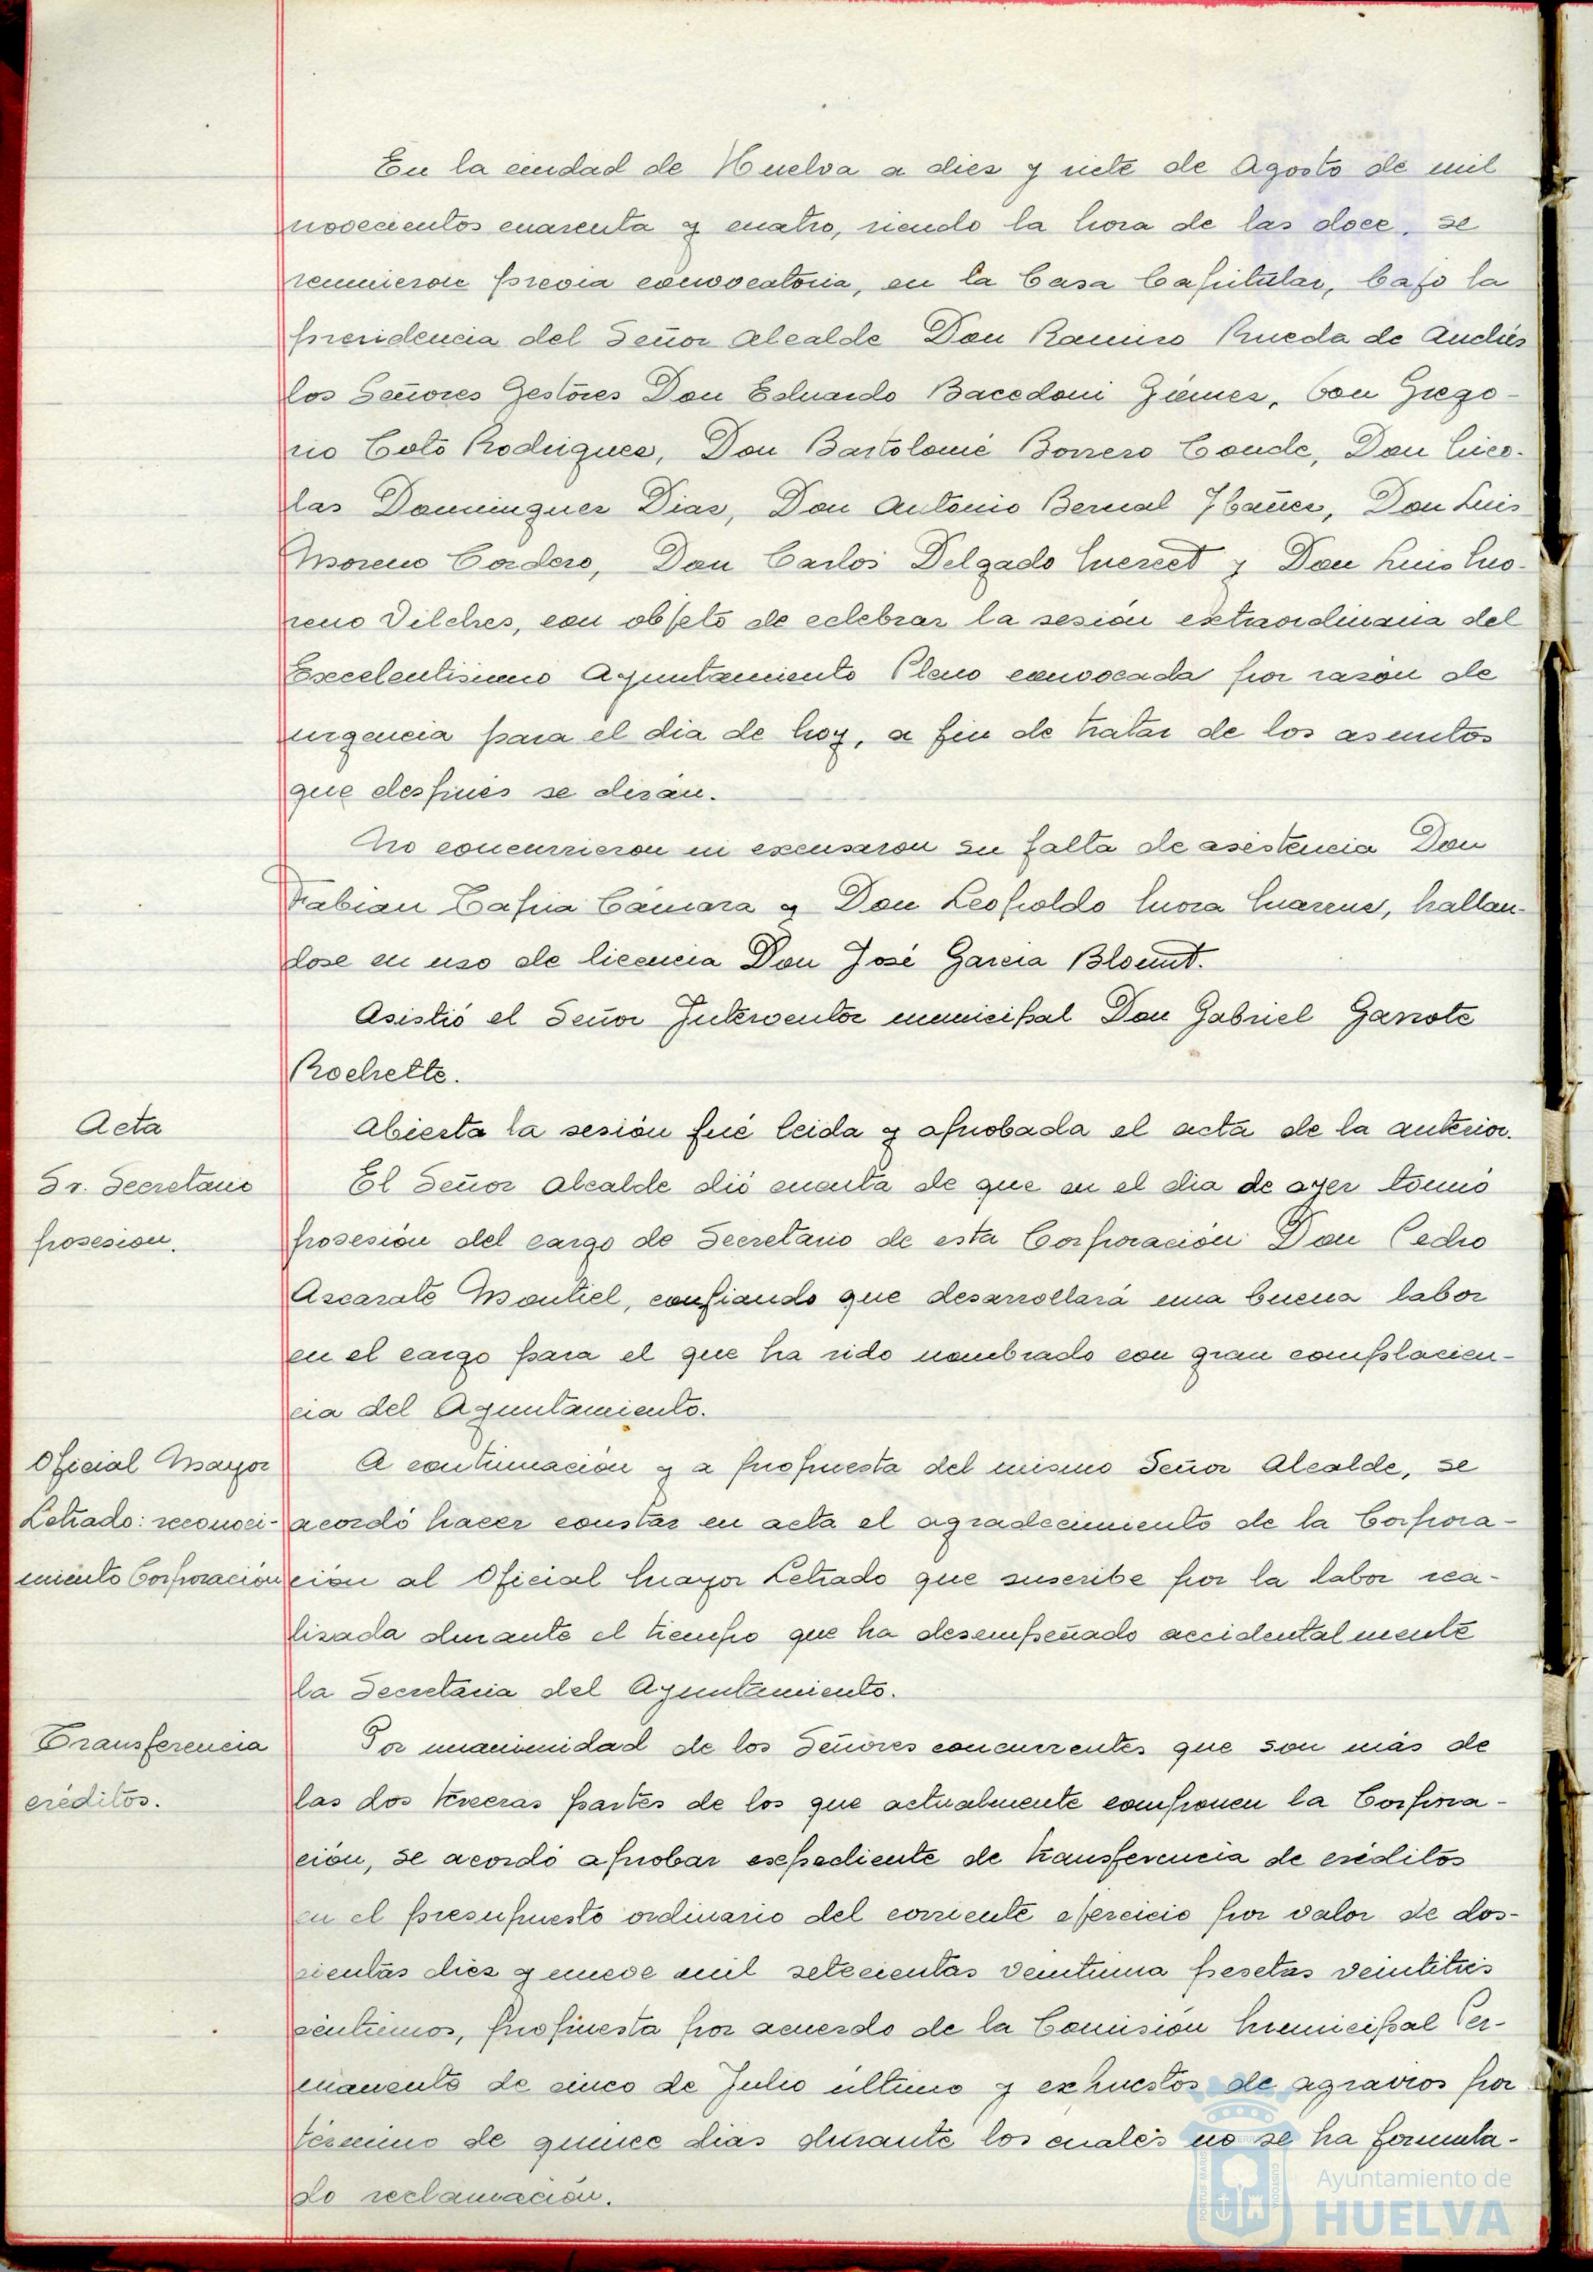 En la ciudad de Huelva a diez y siete de Agosto de mil
novecientos cuarenta y cuatro, siendo la hora de las doce, se
reunieron previa convocatoria, en la Casa Capitular, bajo la
presidencia del Señor Alcalde Don Ramiro Rueda de Andrés
los Señores Gestores Don Eduardo Bacedoni Giémez, Don Grego-
rio Coto Rodriguez, Don Bartolomé Borrero Conde, Don Nico-
las Dominguez Diaz, Don Antonio Bernal Ibañez, Don Luis
Moreno Cordero, Don Carlos Delgado y Don Luis Mo-
reno Vilches, con objeto de celebrar la sesión extraordinaria del
Excelentisimo Ayuntamiento Pleno convocada por razón de
urgencia para el dia de hoy, a fin de tratar de los asuntos
que después se dirán.
No concurrieron ni excusaron su falta de asistencia Don
Fabian Tapia Cámara y Don Leopoldo Mora, hallan-
dose en uso de licencia Don José Garcia Blount.
Asistió el Señor Interventor municipal Don Gabriel Garrote
Rochette.
Acta
Abierta la sesión fué leida y aprobada el acta de la anterior.
Sr. Secretario
posesion.
El Señor Alcalde dió cuenta de que en el dia de ayer tomó
posesión del cargo de Secretario de esta Corporación Don Pedro
Azcarate Montiel, confiando que desarrollará una buena labor
en el cargo para el que ha sido nombrado con gran complacien-
cia del Ayuntamiento.
Oficial Mayor
Letrado: reconoci-
miento Corporación
A continuación y a propuesta del mismo Señor Alcalde, se
acordó hacer constar en acta el agradecimiento de la Corpora-
ción al Oficial Mayor Letrado que suscribe por la labor rea-
lizada durante el tiempo que ha desempeñado accidentalmente
la Secretaria del Ayuntamiento.
Transferencia
créditos.
Por unanimidad de los Señores concurrentes que son más de
las dos terceras partes de los que actualmente componen la Corpora-
ción, se acordó aprobar expediente de transferencia de créditos
en el presupuesto ordinario del corriente ejercicio por valor de dos-
cientas diez y nueve mil setecientas veintiuna pesetas veintitrés
céntimos, propuesta por acuerdo de la Comisión Municipal Per-
manente de cinco de Julio último y expuestos de agravios por
término de quince dias durante los cuales no se ha formula-
do reclamación.
Ayuntamiento de
HUELVA